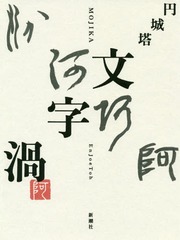 円城塔
文字渦
MOJIKA
EnJoeToh
阿
阿
新潮社